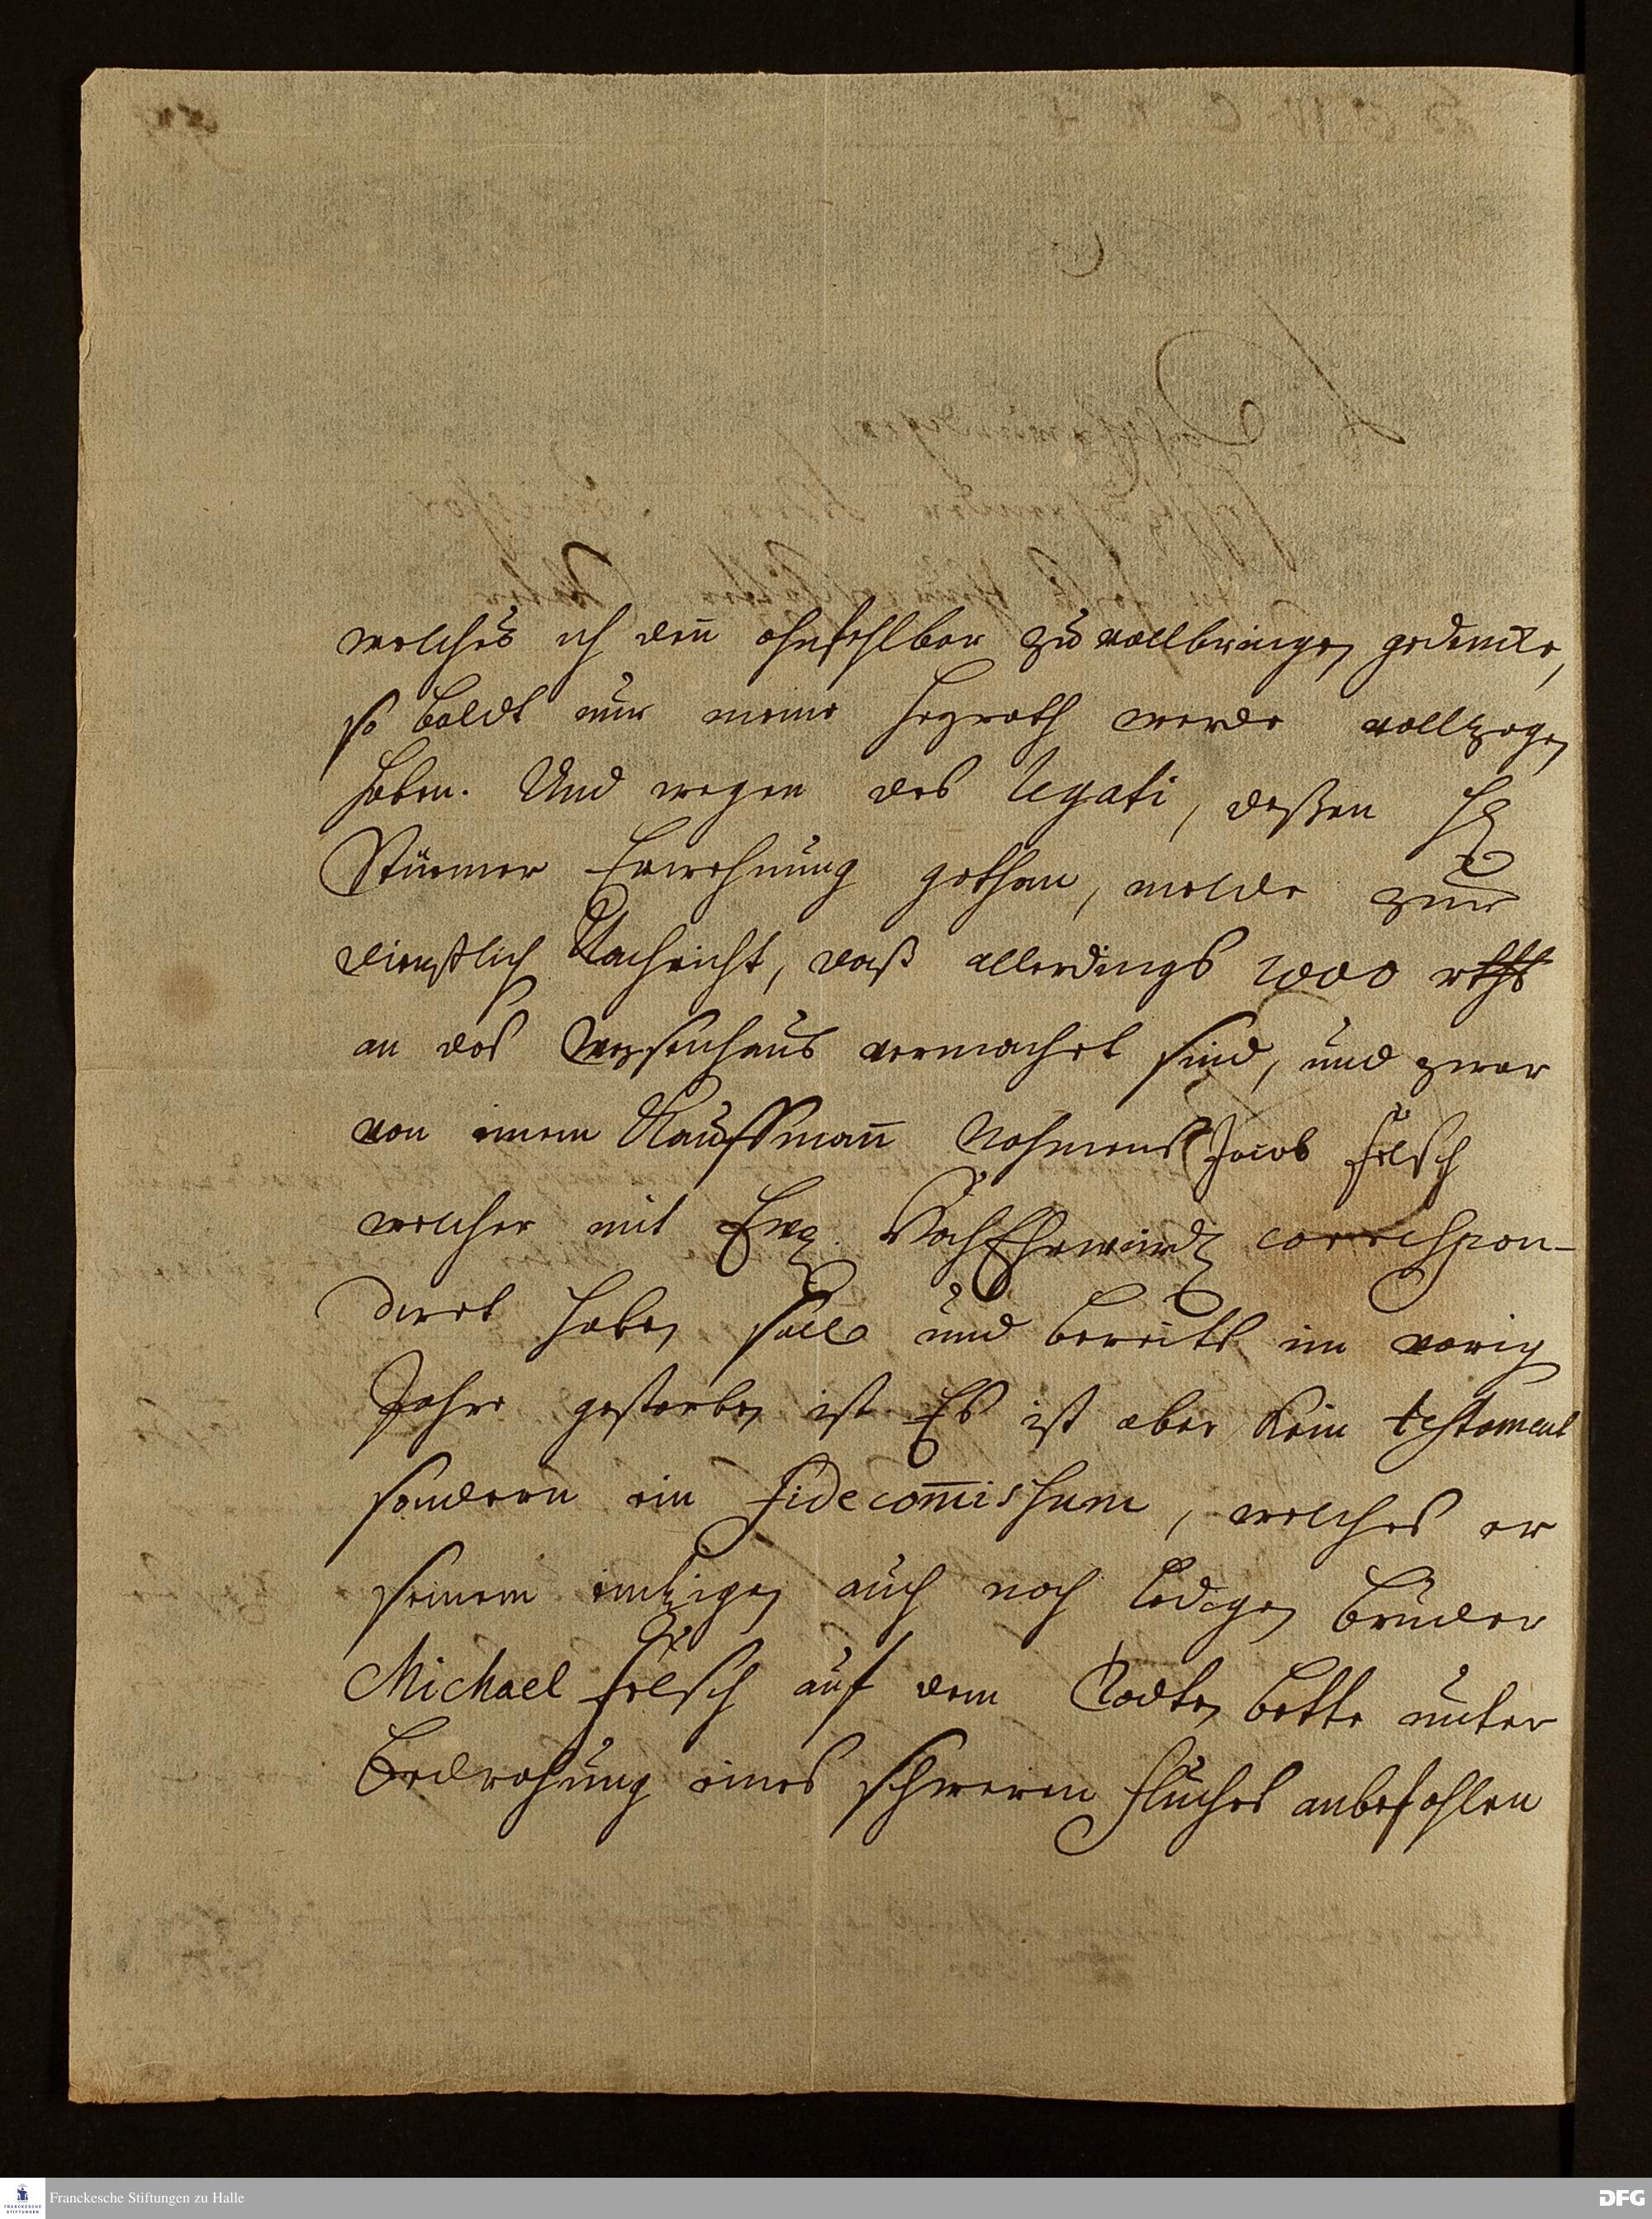 welches ich den̄ ohnfehlbar zu vollbringen gedencke,
so baldt nur meine Heyrath werde vollzogen
haben. Und wegen des Legati, deßen H.
Stürmer Erwehnung gethan, melde zur
dienstlich Nachricht, daß allerdings 1000 rthl
an das Waysenhaus vermachet sind, und zwar
von einem Kauffman̄ Nahmens Jacob Fölsch
welcher mit Ew. HochEhrwürd. correspon-
diret haben soll und bereits im vorig
Jahre gestorben ist. Es ist aber kein testament
sondern ein Fidecom̄issum, welches er
seinem eintzigen auch noch ledigen Bruder
Michael Fölsch auf dem Todten bette unter
Bedrohung eines schweren Fluches anbefohlen
Franckesche Stiftungen zu Halle
FRANCKESCHE
STIFTUNGEN
DFG